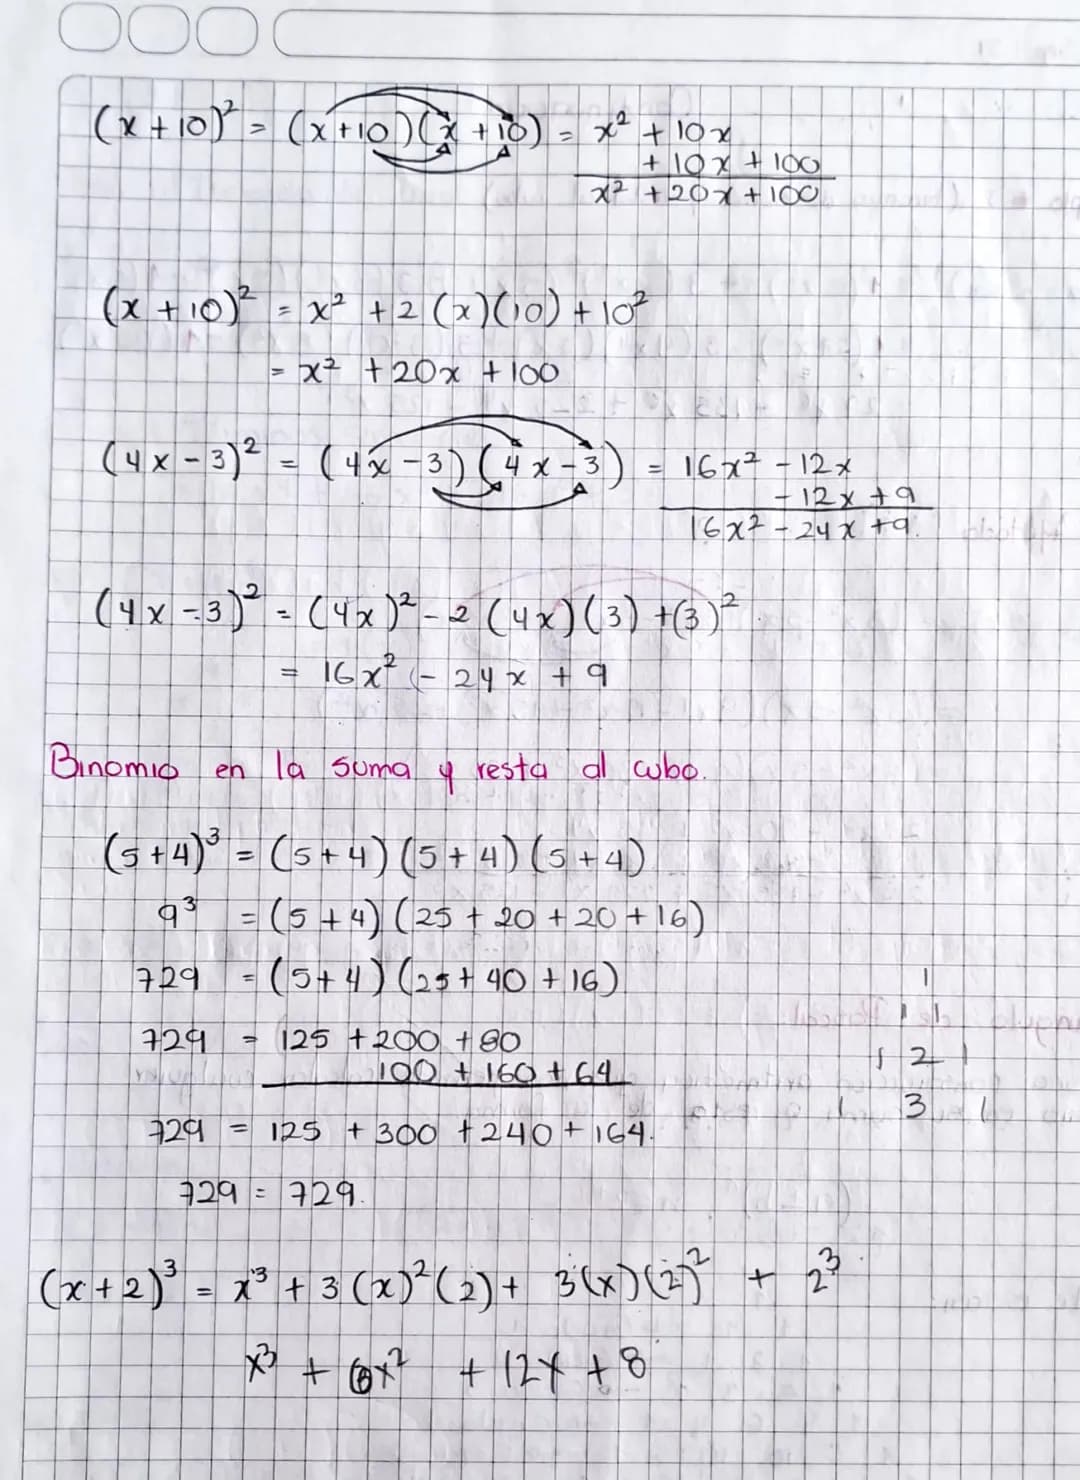 (x + 10)² = (x + 10)(x + 10) = x² + 10x
+ 10x + 100
x² + 20x + 100
(x + 10)² = x² + 2(x)(10) + 10²
= x² + 20x + 100
(4x - 3)² = (4x - 3)(4x - 3) = 16x² - 12x
- 12x + 9
16x² - 24x + 9.
(4x - 3)² = (4x)² - 2(4x)(3) + (3)²
= 16x² - 24x + 9
Binomio en la suma y resta al cubo.
(5+4)³ = (5+4)(5+4)(5+4)
9³ = (5+4)(25 + 20 + 20 + 16)
729 = (5+4)(25 + 40 + 16)
729 = 125 + 200 + 80
100 + 160 + 64
729 = 125 + 300 + 240 + 164.
729 = 729.
1
1 1
1 2 1
1 3 1
(x+2)³ = x³ + 3(x)²(2) + 3(x)(2)² + 2³
x³ + 6x² + 12x + 8